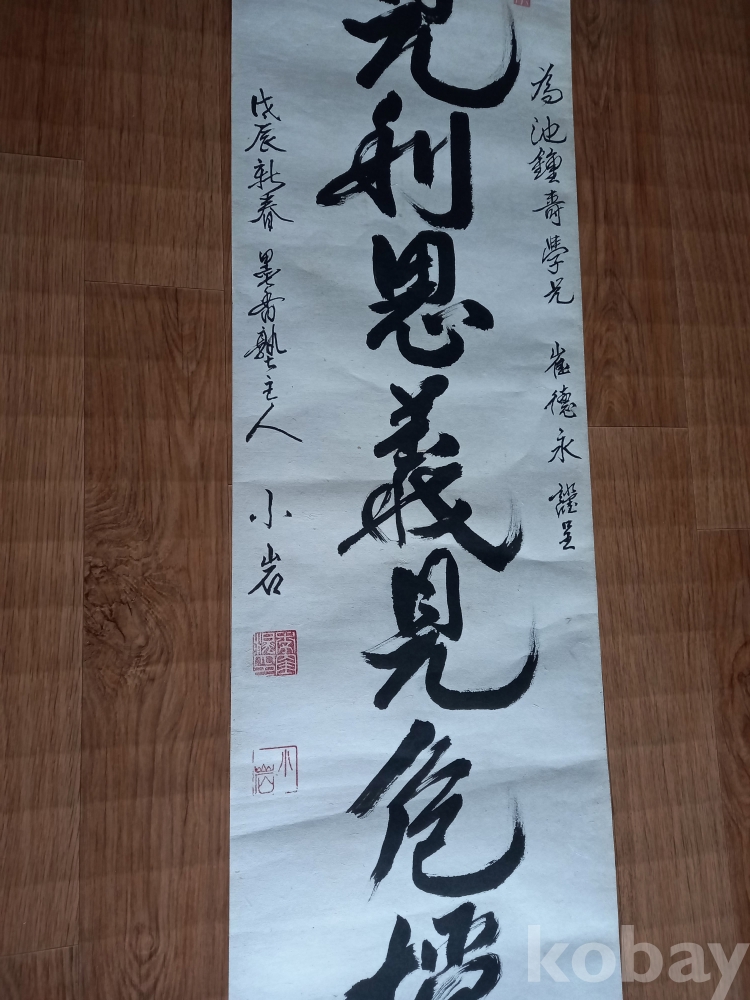 為池鍾壽學兄 崔德永 謹呈
見利思義見危授
戊辰新春 墨香塾主人 小岩
小岩
kobay